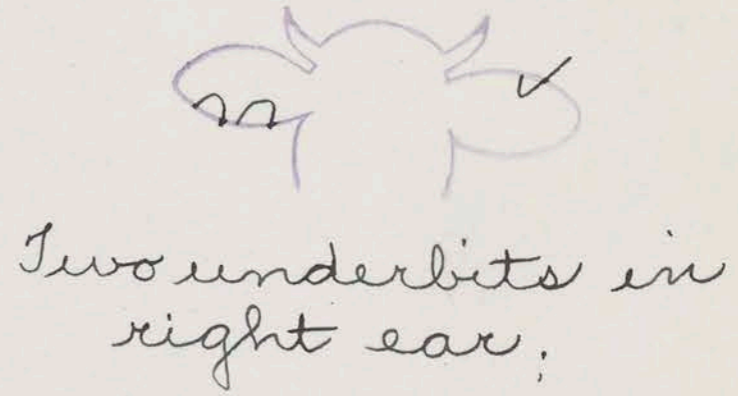 Two underbits in
right ear;